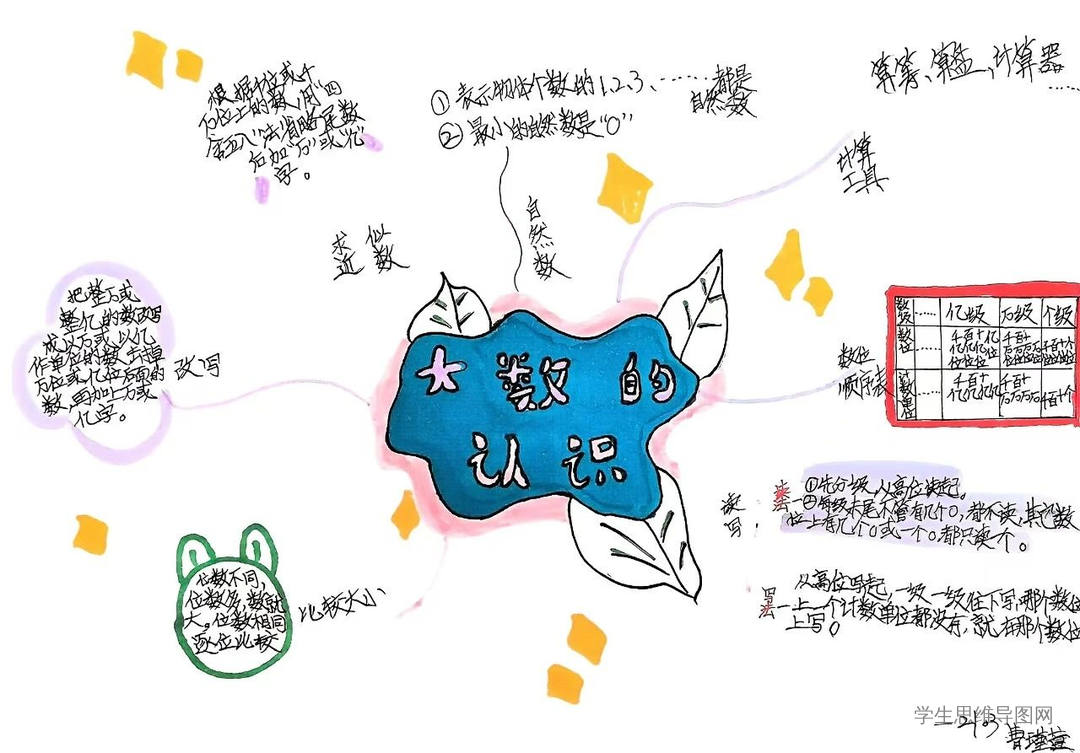 根据千位或千
万位上的数,用“四
舍五入”法省略尾数
后加“万”或“亿”
字。
求近似数
① 表示物体个数的1、2、3、……都是
自然数
② 最小的自然数是“0”
自然数
算筹、算盘、计算器
……
计算
工具
把整万或
整亿的数改写
成以万或以亿
作单位的数,去掉
万位或亿位后面的
数,再加上万或
亿字。
改写
大数的
认识
数位
顺序表
数级 …… 亿级 万级 个级
数位 …… 千百十亿 千百十 千百十个
亿亿亿位 万万万万 位位位位
位位位 位位位位
计数单位 …… 千百十 千百十 千百十个
亿亿亿亿 万万万万
读
写:
读法
①先分级,从高位读起。
②每级末尾不管有几个0,都不读,其它数
位上有几个0或一个0,都只读一个。
写法
从高位写起,一级一级往下写,哪个数位
上一个计数单位都没有,就在那个数位
上写0
比较大小
位数不同,
位数多,数就
大。位数相同
逐位比较
学生思维导图网